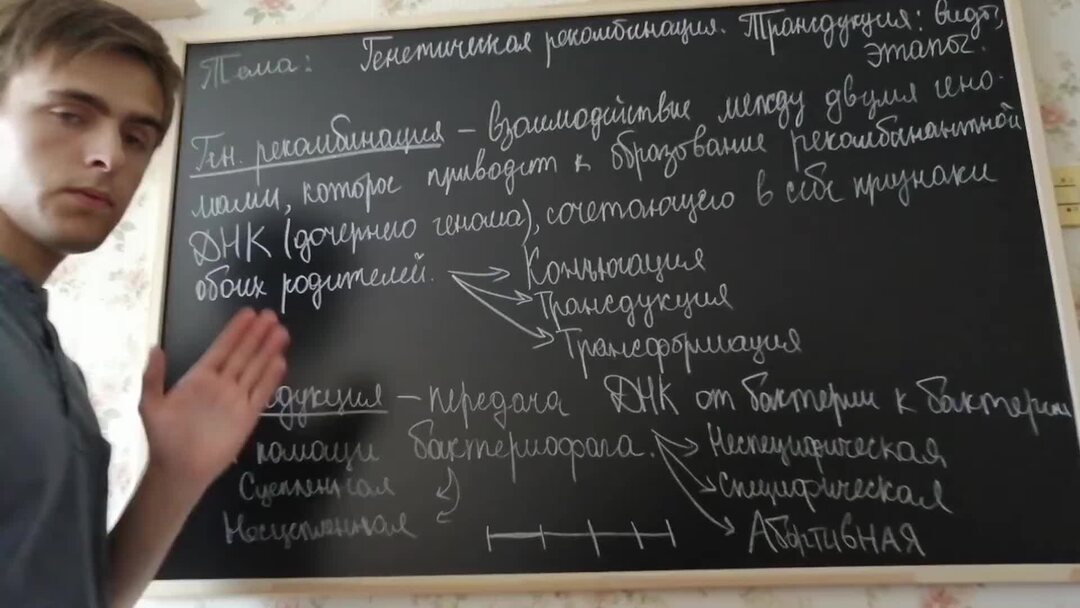 Тема: Генетическая рекомбинация. Трансдукция: виды,
этапы.
Ген. рекомбинация – взаимодействие между двумя гено-
мами, которое приводит к образование рекомбинантной
ДНК (дочернего генома), сочетающего в себе признаки
обоих родителей.
Конъюгация
Трансдукция
Трансформация
дукция – передача ДНК от бактерии к бактерии
помощи бактериофага.
Неспецифическая
Специфическая
Абортивная
Сцепленная
Несцепленная